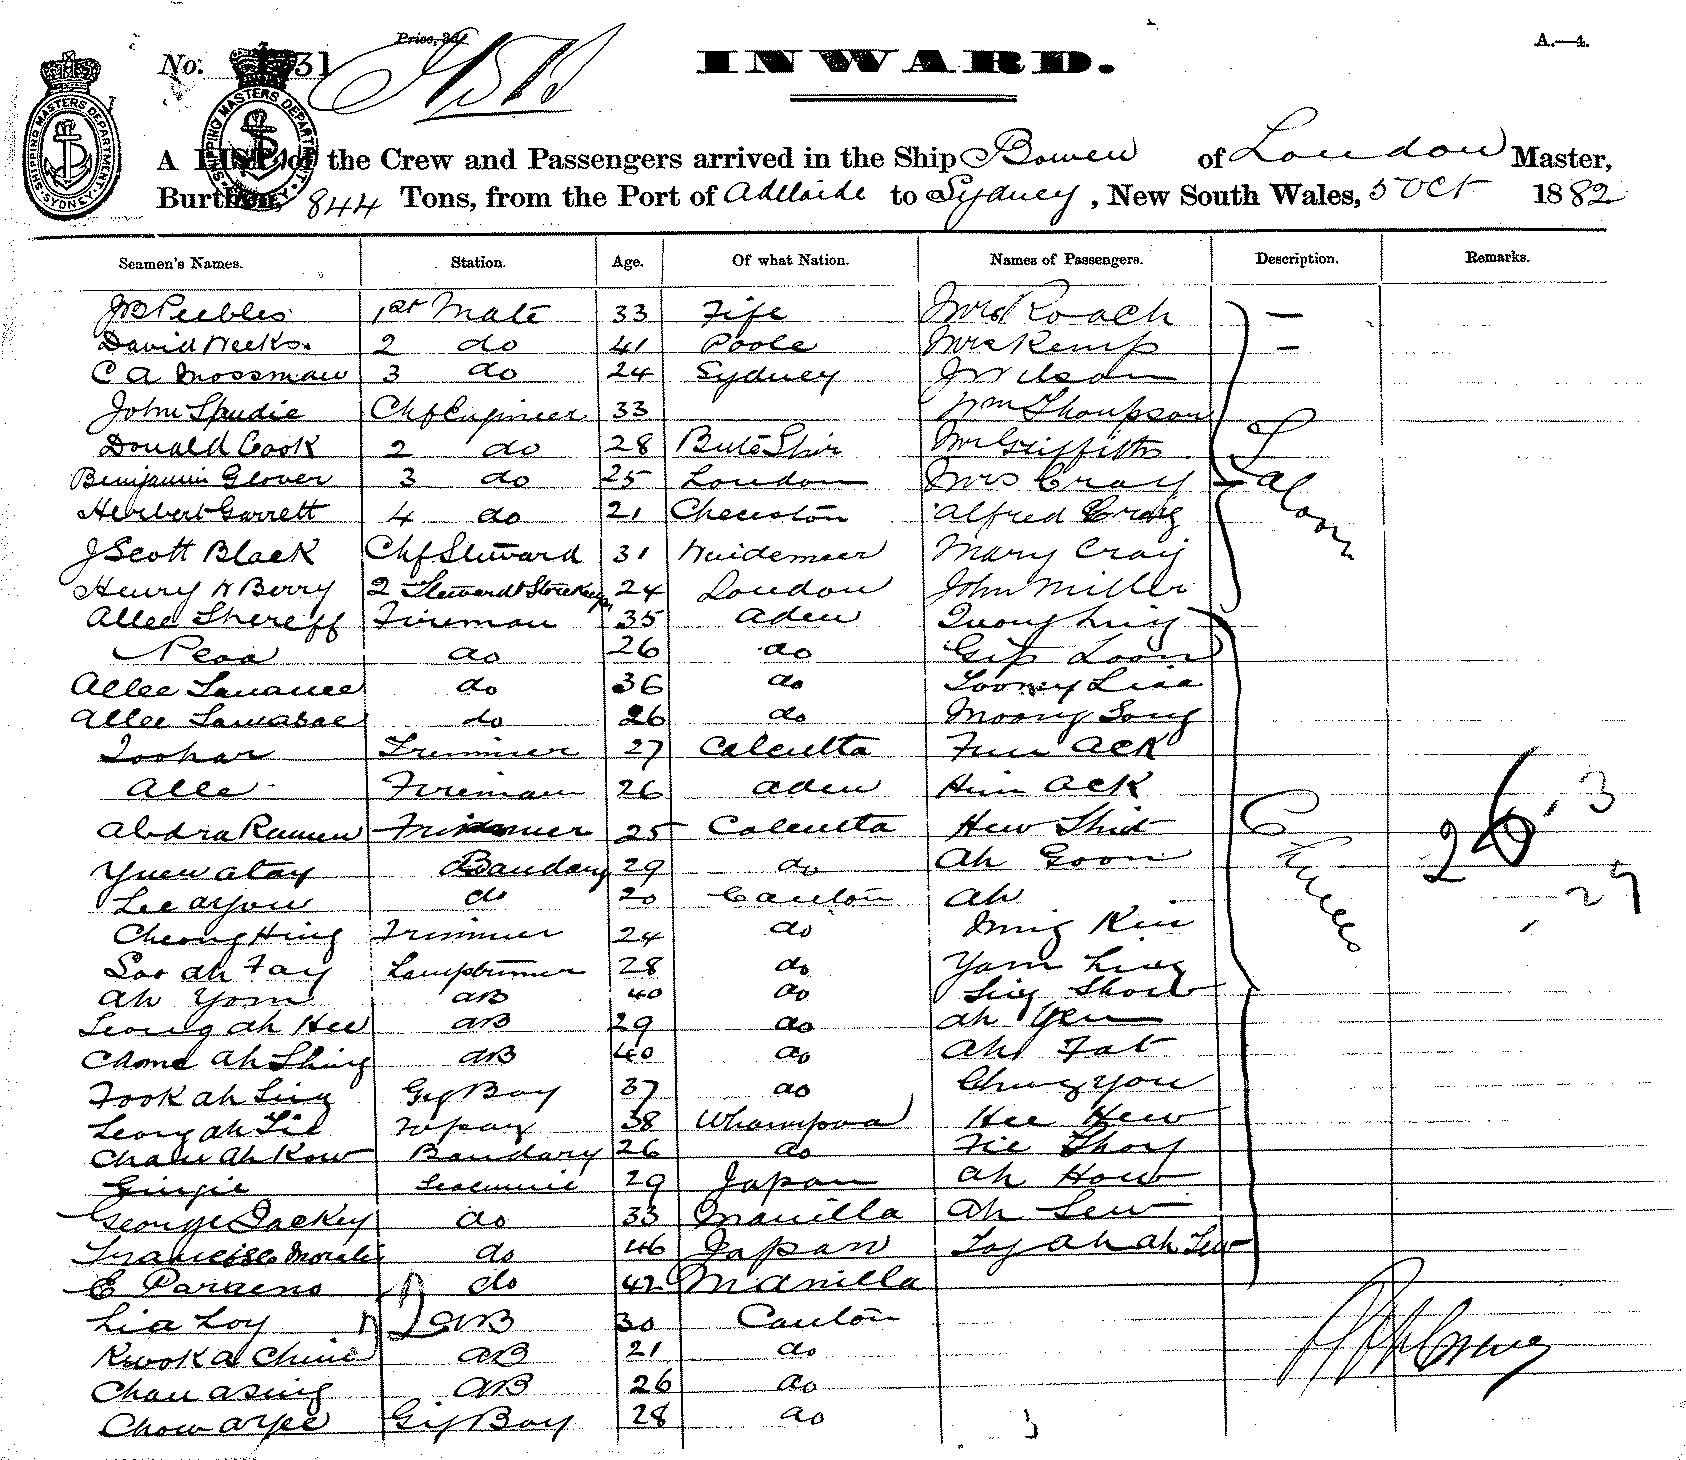 Price, 3d.
A.—4.
No. 31
INWARD.
SHIPPING MASTERS DEPARTMENT. SYDNEY.
SHIPPING MASTERS DEPARTMENT
A LIST of the Crew and Passengers arrived in the Ship Bowen of London Master,
Burthen, 844 Tons, from the Port of Adelaide to Sydney, New South Wales, 5 Oct 1882
Seamen's Names. Station. Age. Of what Nation. Names of Passengers. Description. Remarks.
J B Peebles 1st Mate 33 Fife Mrs Roach —
David Weeks. 2 do 41 Poole Mrs Kemp —
C A Mossman 3 do 24 Sydney J Wilson
John Spudie Chf Engineer 33 Wm Thompson
Donald Cook 2 do 28 Bute Shir Mr Griffiths
Benjamin Glover 3 do 25 London Mrs Craig Saloon
Herbert Garrett 4 do 21 Alfred Craig
J Scott Black Chf Steward 31 Mary Craig
Henry W Berry 2 Steward & Storekeeper 24 London John Miller
Allee Shereff Fireman 35 Aden Quong Ling
do 26 do Gip Loon
Allee do 36 do
Allee do 26 do Moong Song
Trimmer 27 Calcutta Fun Ack
Alle Fireman 26 Aden Him Ack
Abdra Ramen Trimmer 25 Calcutta Hew Shit Chinese 26 , 3
Yuen atay Bandary 29 do Ah Goon
Lee ayow do 20 Canton Ah , 29
Cheong Hing Trimmer 24 do Ming Kin
Soo ah Fay Lamptrimer 28 do Yam Ling
Ah Yom AB 40 do Sing Show
Leong ah Hee AB 29 do Ah Yen
Ah Shing AB 40 do Ah Fat
Fook ah Sing Gig Boy 37 do Chung You
Leong ah Tie Topay 38 Whampoa Hee Hew
Chau ah Kow Bandary 26 do Tie Shoy
Gingie Seacunnie 29 Japan Ah How
George Jackey do 33 Manilla Ah Lew
Francisco do 46 Japan
E do 42 Manilla
Lia Loy AB 30 Canton
Kwok a Ching AB 21 do
Chau asing AB 26 do
Chow Gig Boy 28 do